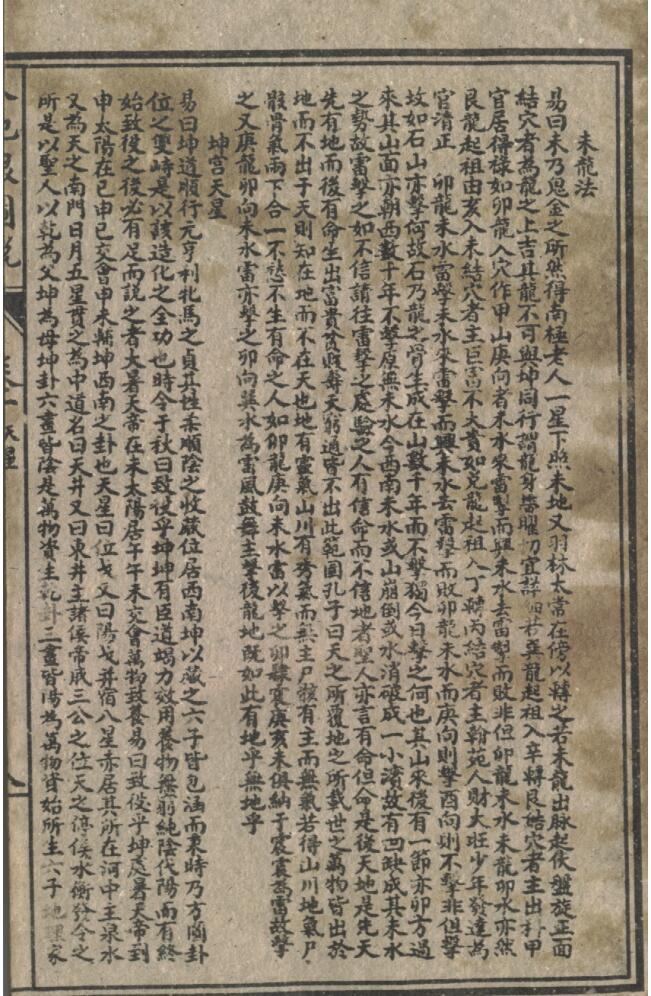 未龍法
易曰未乃鬼金之所然得南極老人一星下照未地又羽林太常在傍以轉之若未龍出脉起伏盤旋正面
結穴者為龍之上吉其龍不可與坤同行謂龍身帶曜切宜詳細若巽龍起祖入辛轉艮結穴者主出科甲
官居得祿如卯龍入穴作甲山庚向者未水來雷擊而興未水去雷擊而敗非但卯龍未水未龍卯水亦然
艮龍起祖由亥入未結穴者主巨富不大貴如兌龍起祖入丁轉丙結穴者主翰苑人財大旺少年發達為
官清正 卯龍未水雷擊未水來雷擊而興未水去雷擊而敗卯龍未水而庚向則擊酉向則不擊非但擊
坟如石山亦擊何故石乃龍之骨生成在山數千年而不擊獨今日擊之何也其山來後有一節亦卯方過
來其山面亦朝西數千年不擊原無未水今西南未水或山崩倒或水消破成一小濱故有凹缺成其未水
之勢故雷擊之如不信請往雷擊之處驗之人有信命而不信地者聖人亦言有命但命是後天地是先天
先有地而後有命生出富貴貧賤壽夭窮通皆不出此範圍孔子曰天之所覆地之所載世之萬物皆出於
地而不出于天則知在地而不在天也地有靈氣山川有秀氣而無主尸骸有主而無氣若得山川地氣尸
骸骨氣兩下合一不慈不生有命之人如卯龍庚向未水雷以擊之卯肆震庚亥未俱納于震震為雷故擊
之又庚龍卯向未水雷亦擊之卯向巽水為雷風鼓舞主擊後龍地既如此有地乎無地乎
坤宮天星
易曰坤道順行元亨利牝馬之貞其性柔順陰之收藏位居西南坤以藏之六子皆包涵而東時乃方圖卦
位之對峙是以該造化之全功也時令于秋曰致役乎坤坤有臣道竭力效用養物無窮純陰代陽而有終
始致役之後必有足而說之者大暑天帝在未太陽居午午未交會萬物致養易曰致役乎坤處暑天帝到
申太陽在巳申巳交會申未輔坤西南之卦也天星曰位戈又曰陽戈井宿八星赤居其所在河中主泉水
又為天之南門日月五星貫之為中道名曰天井又曰東井主諸侯帝戚三公之位天之停侯水衡發令之
所是以聖人以乾為父坤為母坤卦六畫皆陰是萬物資生乾卦三畫皆陽為萬物資始所生六子地理家